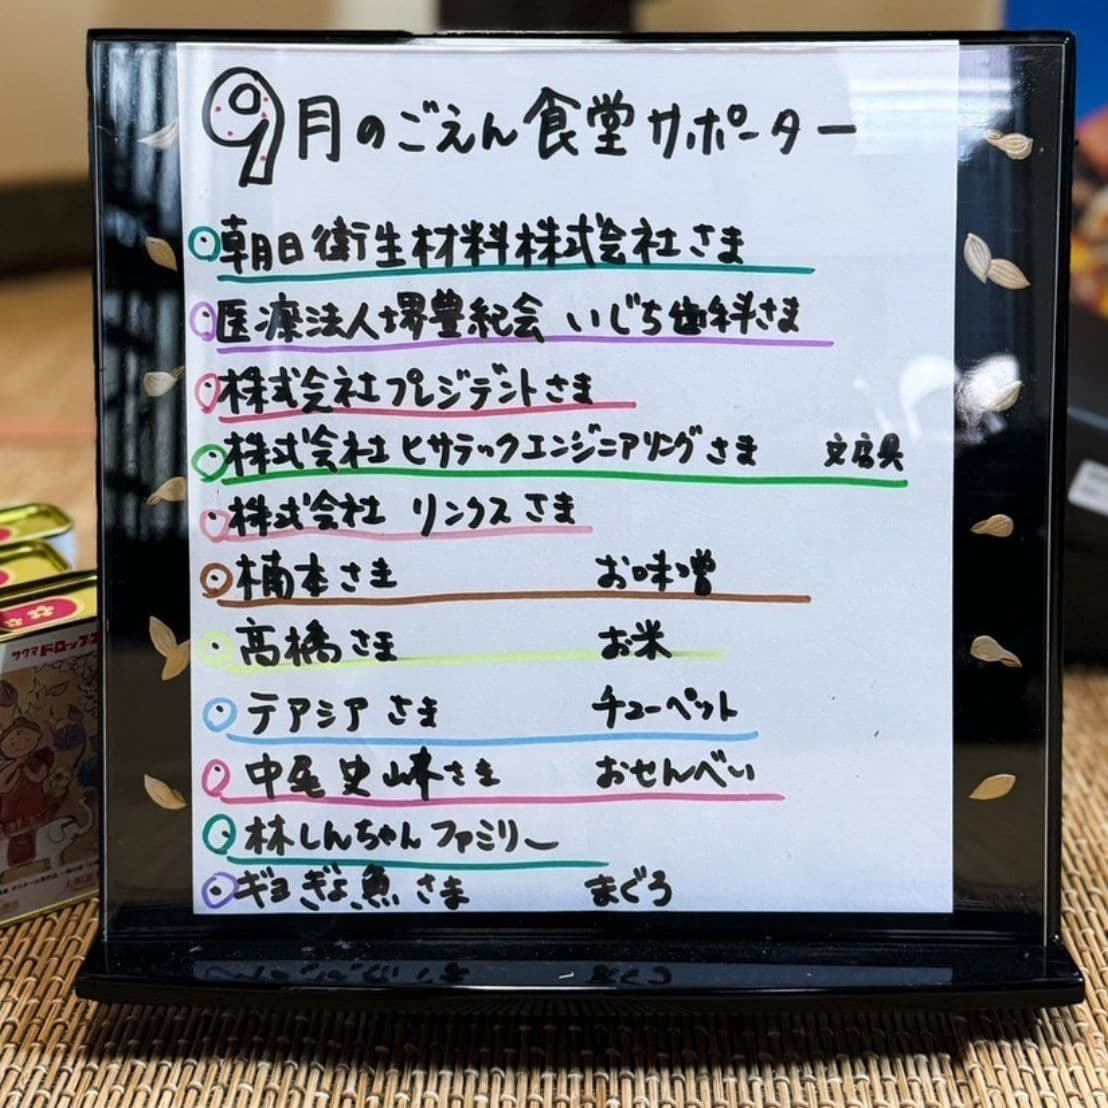 9月のごえん食堂サポーター
朝日衛生材料株式会社さま
医療法人堺豊紀会 いじち歯科さま
株式会社プレジデントさま
株式会社ヒサテックエンジニアリングさま 文房具
株式会社 リンクスさま
楠本さま お味噌
高橋さま お米
テアシア さま チューペット
中尾 史峰さま おせんべい
林しんちゃんファミリー
ギョぎょ魚さま まぐろ
サクマドロップス